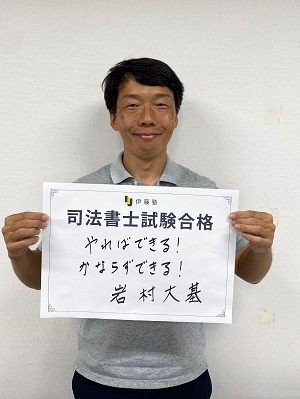 伊藤塾
司法書士試験合格
やればできる!
かならずできる!
岩村大基